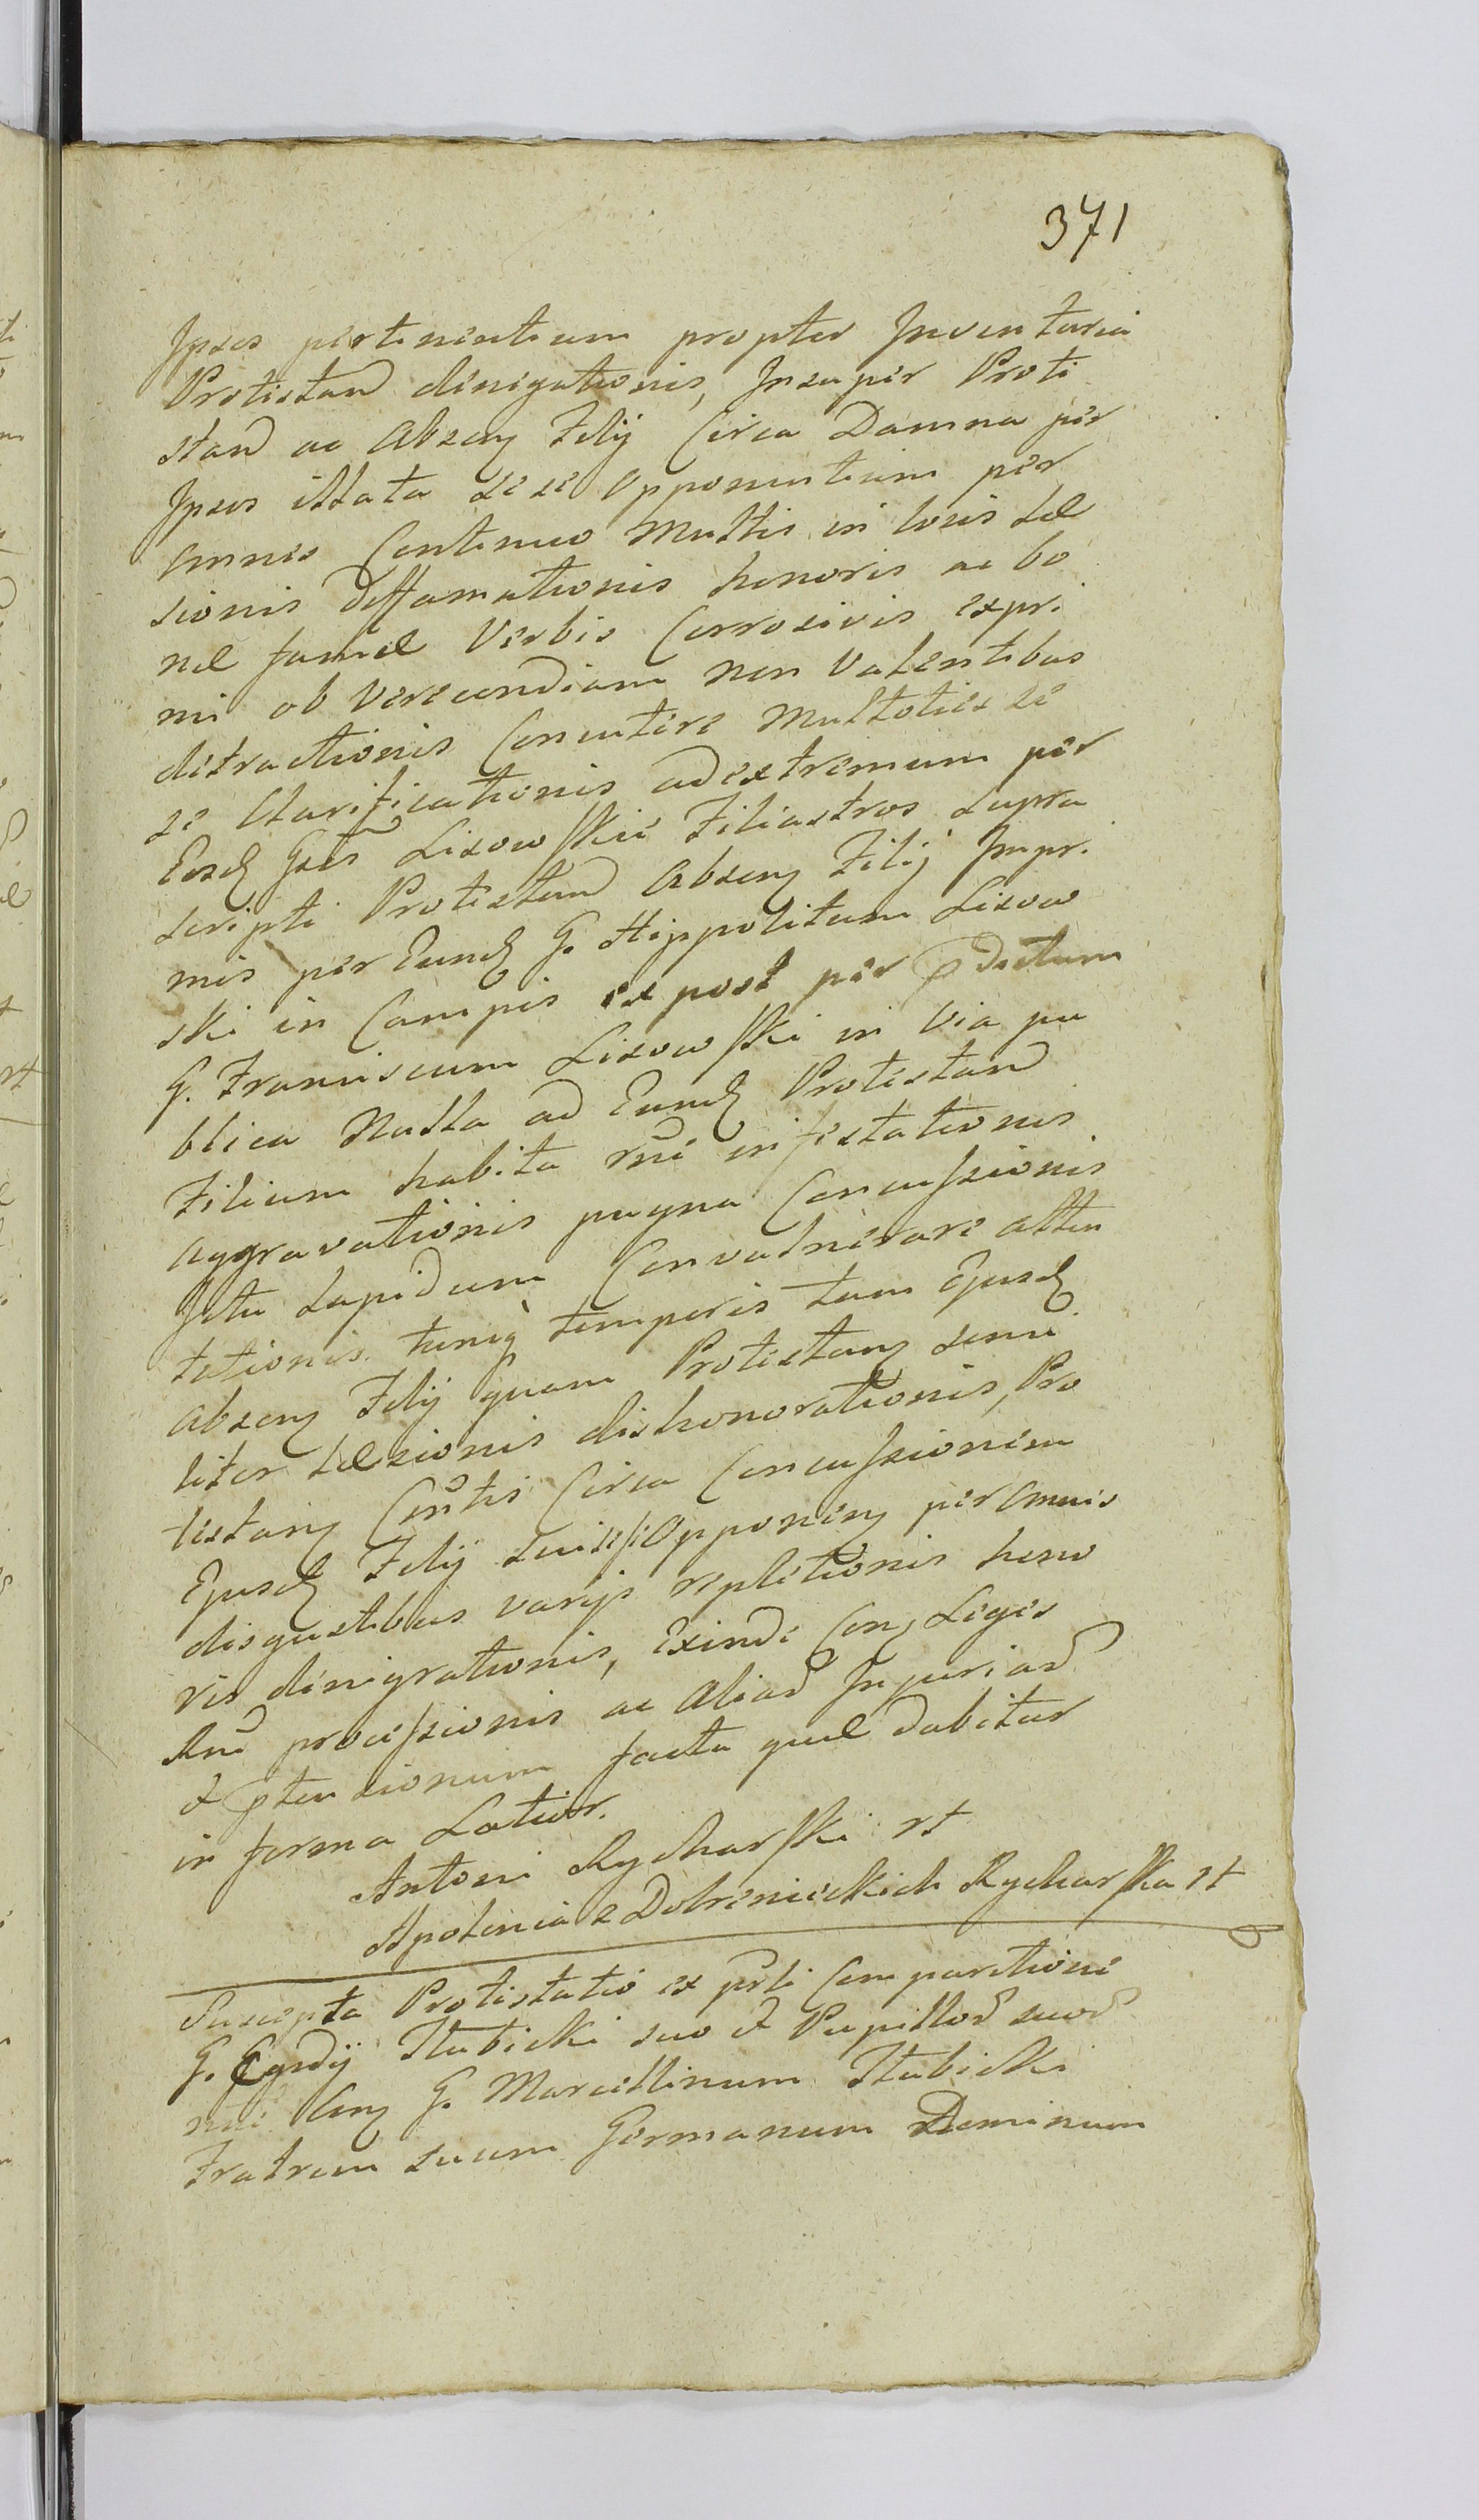 371
Ipsos pertinentium propter Inventaria
Protestan denegationis, Insuper Prote
stan ac Absen Filij Circa Damna per
Ipsos illata sese Opponentium per
omnes Continuo Multis in locis Læ
sionis deffamationis honoris ac bo
næ famæ Verbis Corrosivis expri
mi ob Verecundiam non Valentibus
detractionis Concutere Multoties se
se Clarificationis ad extremum per
Eosd Gsos Lisowskie Filiastros supra
scripti Protestan Absen Filij Inpri
mis per Eund G. Hippolitum Lisow
ski in Campis ex post per p Dictum
G. Franciscum Lisowski in Via pu
blica Nulla ad Eund Protestan
Filium habita rne infestationis
aggravationis pugna Concussionis
Ictu Lapidum Convulnerare atten
tationis tunq temporis tam Ejusd
absen Filij quam Protestan simi
liter Læsionis dishonorationis, Pro
testan Contis Circa Concussionem
Ejusd Filij sui sese Opponen per Omnis
disgustibus varijs repletionis hono
ris denigrationis, Exinde Con Leges
Rni processionis ac aliar Injuriar
& ptensionum facta quæ dabitur
in forma Latior.
Antoni Rycharski rt
Apolonia z Dobrzenieckich Rycharska rt
Suscepta Protestatio ex prti Comparitione
G. Egidij Stubicki suo & Pupillor suor
nne Con G. Marcellinum Stubicki
Fratrem suum Germanum Dominum